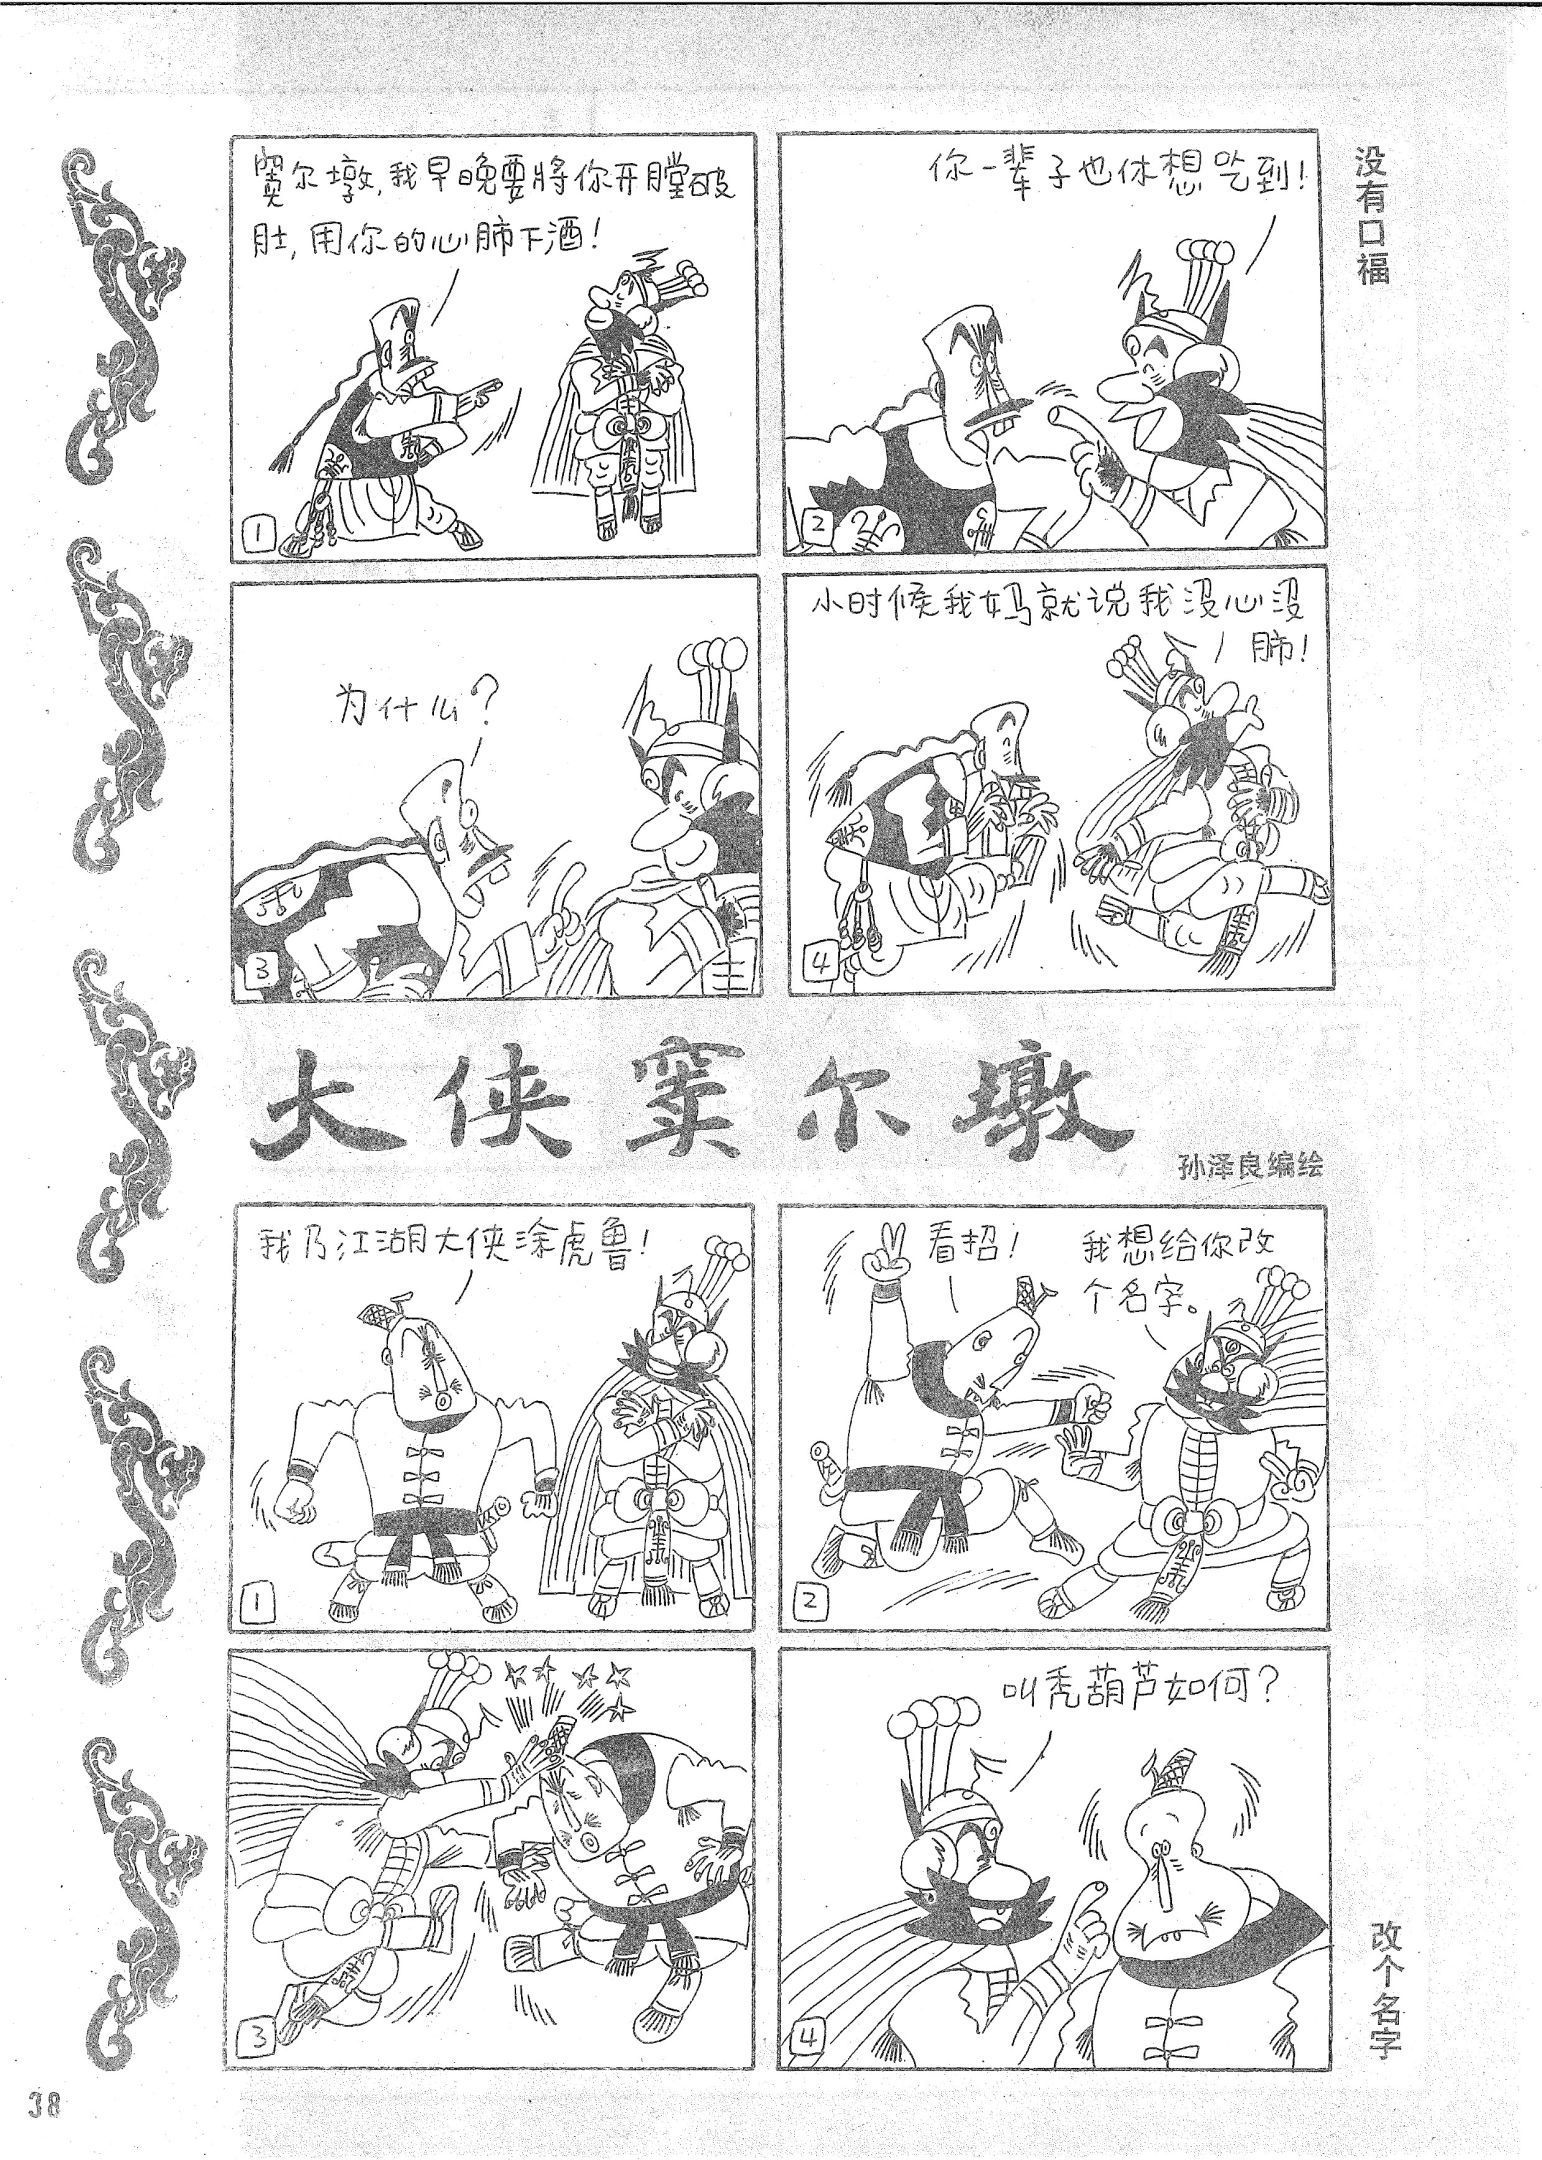 没有口福
窦尔墩,我早晚要将你开膛破
肚,用你的心肺下酒!
1
你一辈子也休想吃到!
2
为什么?
3
小时候我妈就说我没心没
肺!
4
大侠窦尔墩
孙泽良编绘
改个名字
我乃江湖大侠涂虎鲁!
1
看招!
我想给你改
个名字。
2
3
叫秃葫芦如何?
4
38